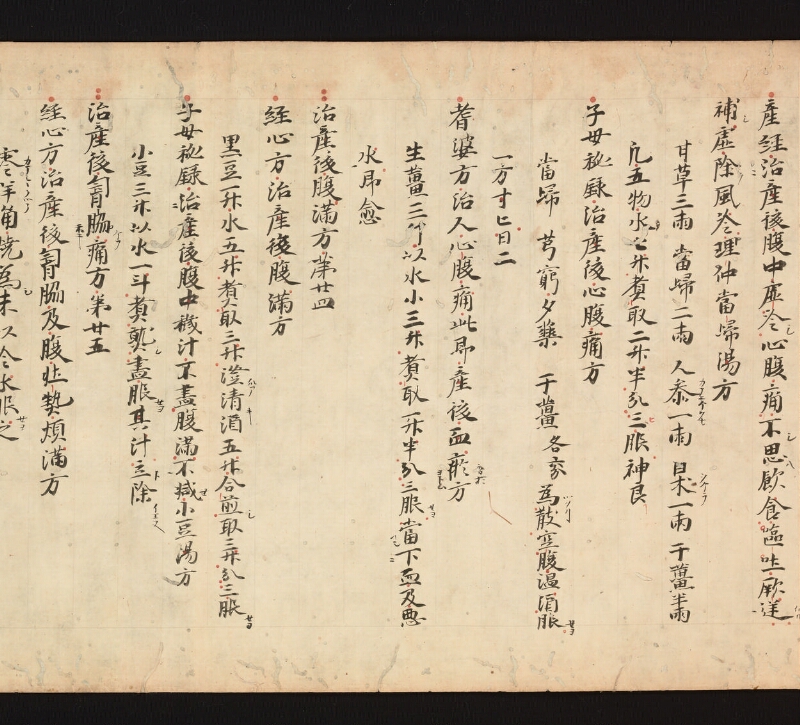 産経治産後腹中虚冷心腹痛不思飲食嘔吐厥逆
補虚除風冷理仲當歸湯方
甘草三兩 當歸二兩 人参一兩 白朮一兩 干薑半兩
凡五物水七升煮取二升半分三服神良
子母祕録治産後心腹痛方
當歸 芎窮 夕藥 干薑 各六分 為散空腹温酒服
一方寸匕日二
耆婆方治人心腹痛此即産後血瘀方
生薑三斤以水小三升煮取一升半分三服當下血及惡
水即愈
治産後腹滿方第廿四
経心方治産後腹滿方
黒豆一升水五升煮取三升澄清酒五升合煎取三升分三服
子母祕録治産後腹中穢汁不盡腹滿不減小豆湯方
小豆三升以水一斗煮熟盡服其汁立除
治産後胷脇痛方第廿五
経心方治産後胷脇及腹壯熱煩滿方
羊角燒為末以冷水服之